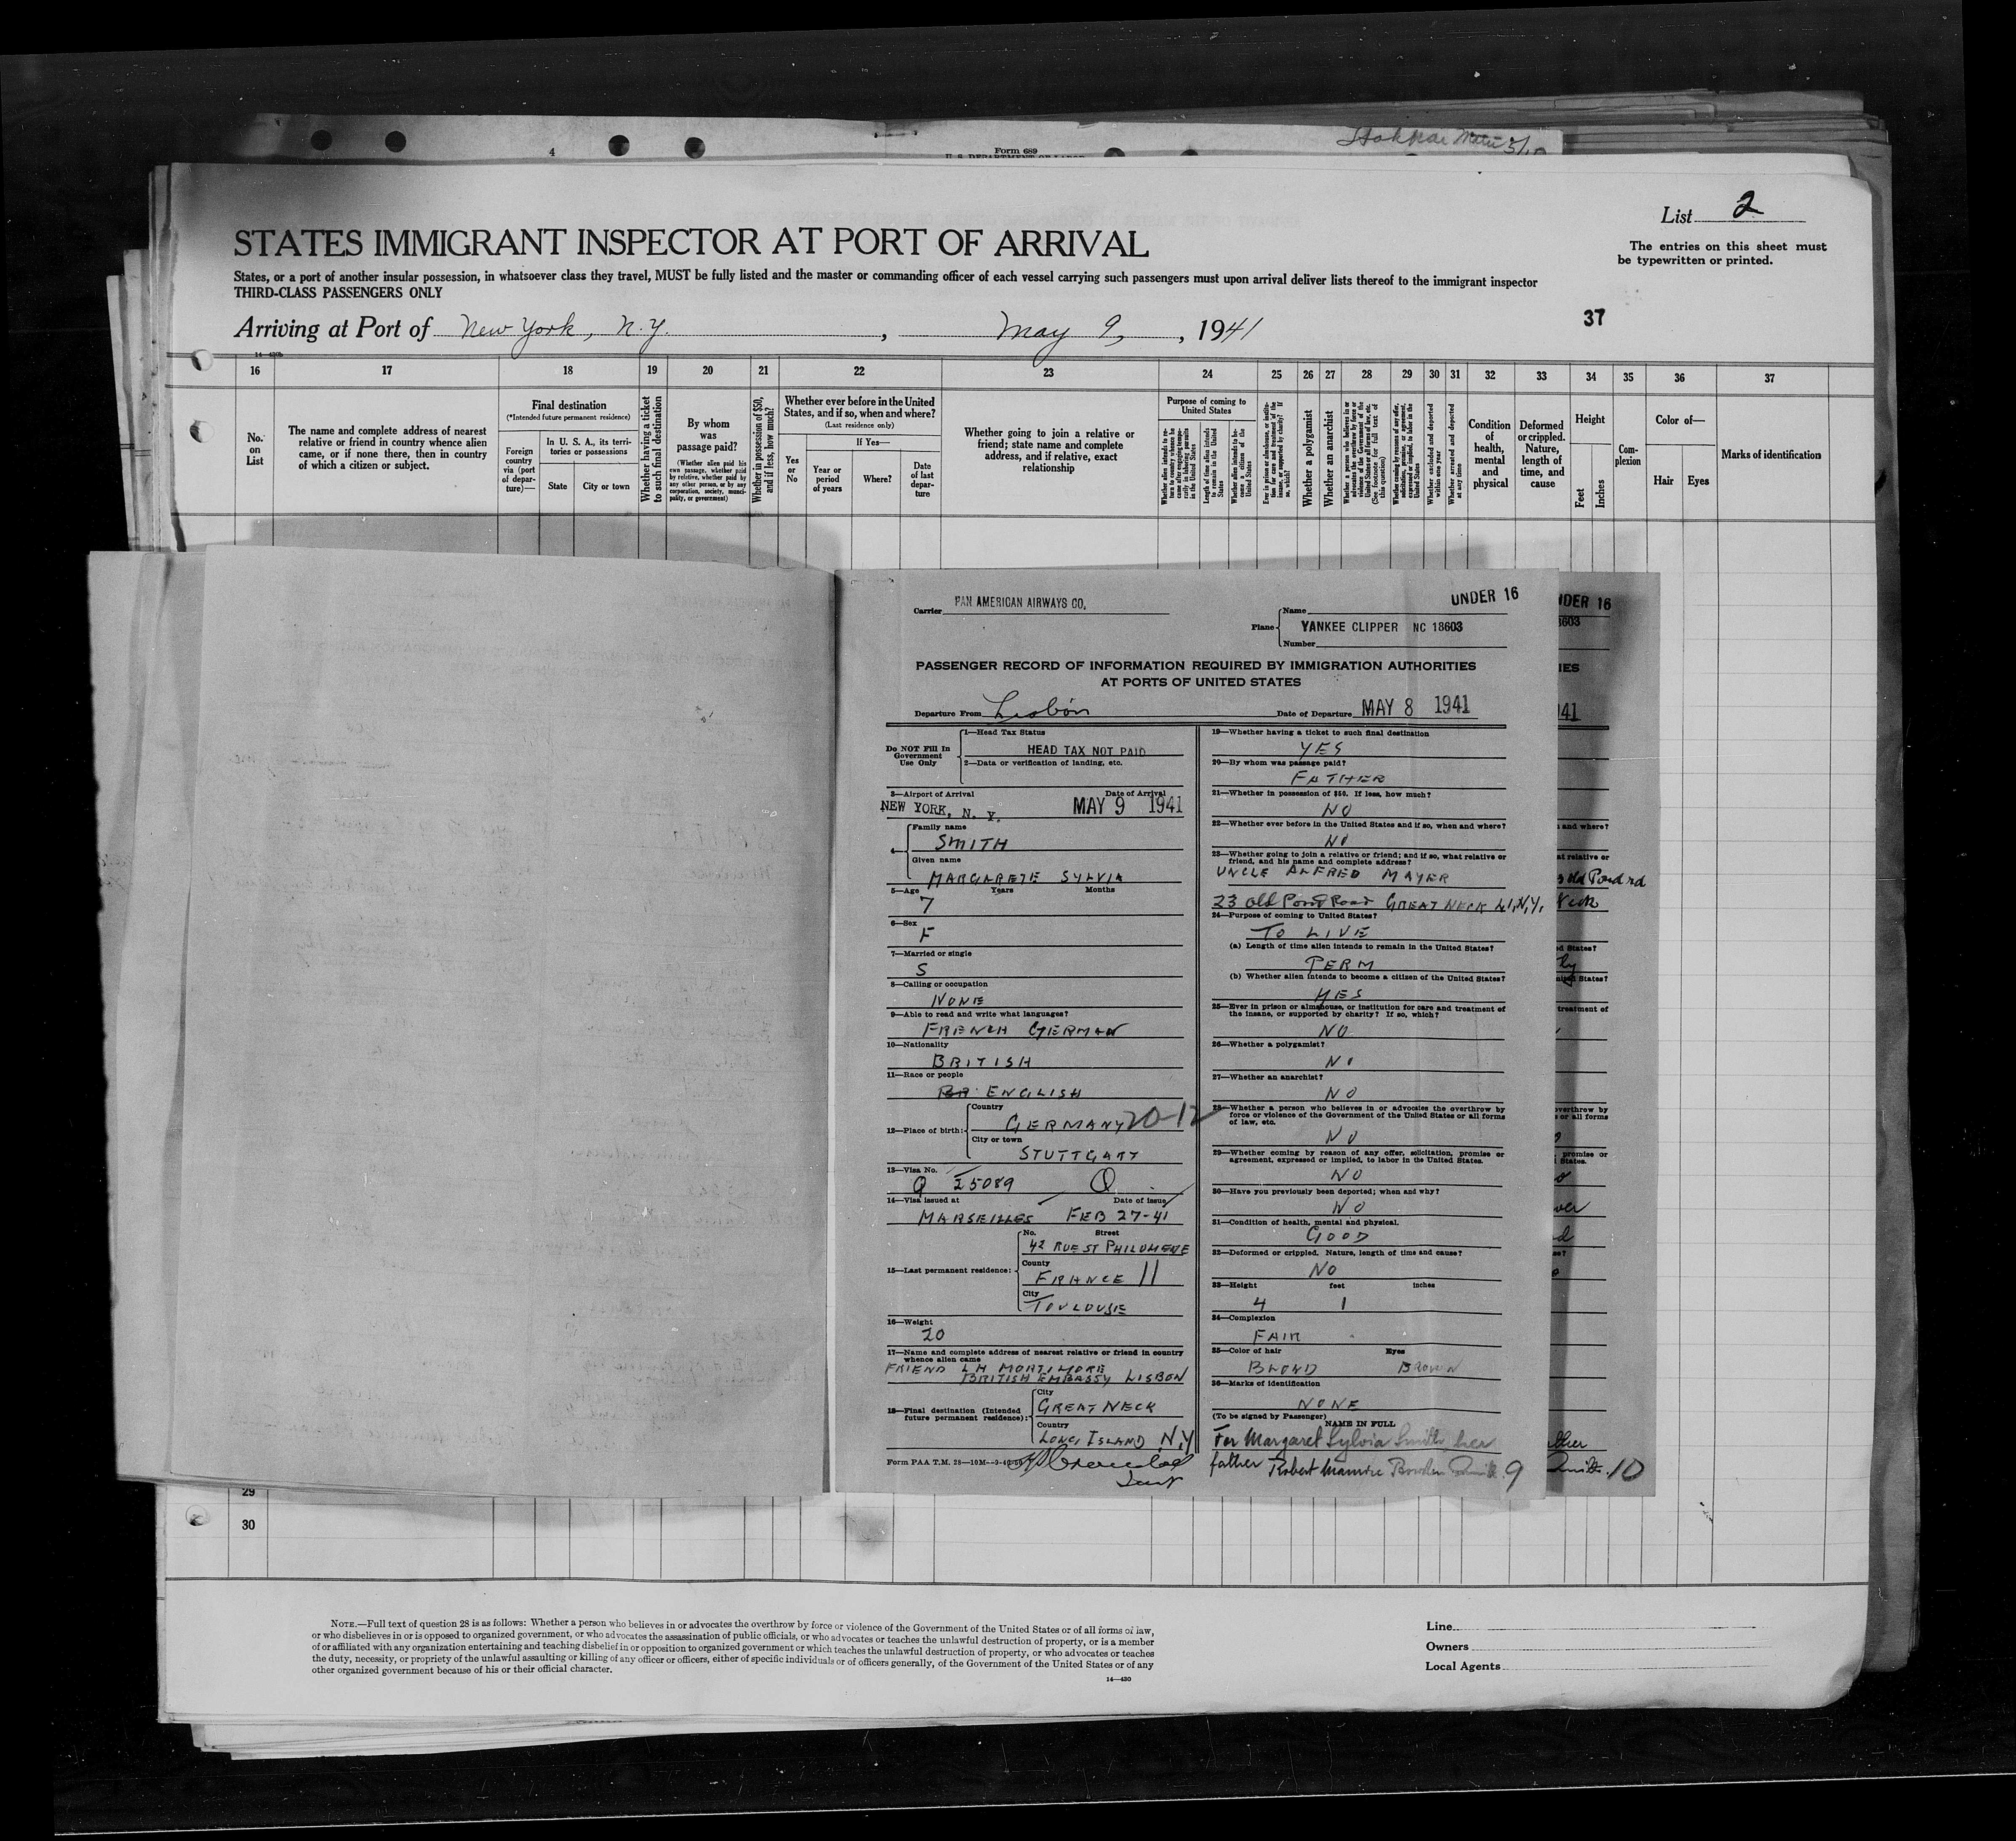 4
Form 689
List 2
STATES IMMIGRANT INSPECTOR AT PORT OF ARRIVAL
The entries on this sheet must
be typewritten or printed.
States, or a port of another insular possession, in whatsoever class they travel, MUST be fully listed and the master or commanding officer of each vessel carrying such passengers must upon arrival deliver lists thereof to the immigrant inspector
THIRD-CLASS PASSENGERS ONLY
37
Arriving at Port of New York, N.Y. , May 9, , 1941
16 17 18 19 20 21 22 23 24 25 26 27 28 29 30 31 32 33 34 35 36 37
No. on List
The name and complete address of nearest relative or friend in country whence alien came, or if none there, then in country of which a citizen or subject.
Final destination
(*Intended future permanent residence)
Foreign country via (port of departure)—
In U. S. A., its territories or possessions
State
City or town
Whether having a ticket to such final destination
By whom was passage paid?
(Whether alien paid his own passage, whether paid by relative, whether paid by any other person, or by any corporation, society, municipality, or government)
Whether in possession of $50, and if less, how much?
Whether ever before in the United States, and if so, when and where?
(Last residence only)
Yes or No
If Yes—
Year or period of years
Where?
Date of last departure
Whether going to join a relative or friend; state name and complete address, and if relative, exact relationship
Purpose of coming to United States
Whether a polygamist
Whether an anarchist
Condition of health, mental and physical
Deformed or crippled. Nature, length of time, and cause
Height
Feet
Inches
Complexion
Color of—
Hair
Eyes
Marks of identification
Carrier PAN AMERICAN AIRWAYS CO.
UNDER 16
Plane
Name
YANKEE CLIPPER NC 18603
Number
PASSENGER RECORD OF INFORMATION REQUIRED BY IMMIGRATION AUTHORITIES
AT PORTS OF UNITED STATES
Departure From Lisbon Date of Departure MAY 8 1941
Do NOT Fill In
Government
Use Only
1—Head Tax Status
HEAD TAX NOT PAID
2—Data or verification of landing, etc.
3—Airport of Arrival Date of Arrival
NEW YORK, N. Y. MAY 9 1941
4—
Family name
SMITH
Given name
MARGARETE SYLVIA
5—Age Years Months
7
6—Sex
F
7—Married or single
S
8—Calling or occupation
NONE
9—Able to read and write what languages?
FRENCH GERMAN
10—Nationality
BRITISH
11—Race or people
ENGLISH
12—Place of birth:
Country
GERMANY 20-12
City or town
STUTTGART
13—Visa No.
Q I5089 Q
14—Visa issued at Date of issue
MARSEILLES FEB 27-41
15—Last permanent residence:
No. Street
42 RUE ST PHILOMENE
County
FRANCE 11
City
TOULOUSE
16—Weight
20
17—Name and complete address of nearest relative or friend in country
whence alien came
FRIEND L H MORTIMORE
BRITISH EMBASSY LISBON
18—Final destination (Intended
future permanent residence):
City
GREAT NECK
Country
LONG ISLAND N,Y
Form PAA T.M. 28—10M—9-40
19—Whether having a ticket to such final destination
YES
20—By whom was passage paid?
FATHER
21—Whether in possession of $50. If less, how much?
NO
22—Whether ever before in the United States and if so, when and where?
NO
23—Whether going to join a relative or friend; and if so, what relative or
friend, and his name and complete address?
UNCLE ALFRED MAYER
23 Old Pond Road GREAT NECK L,I,N,Y,
24—Purpose of coming to United States?
TO LIVE
(a) Length of time alien intends to remain in the United States?
PERM
(b) Whether alien intends to become a citizen of the United States?
YES
25—Ever in prison or almshouse, or institution for care and treatment of
the insane, or supported by charity? If so, which?
NO
26—Whether a polygamist?
NO
27—Whether an anarchist?
NO
28—Whether a person who believes in or advocates the overthrow by
force or violence of the Government of the United States or all forms
of law, etc.
NO
29—Whether coming by reason of any offer, solicitation, promise or
agreement, expressed or implied, to labor in the United States.
NO
30—Have you previously been deported; when and why?
NO
31—Condition of health, mental and physical.
GOOD
32—Deformed or crippled. Nature, length of time and cause?
NO
33—Height feet inches
4 1
34—Complexion
FAIR
35—Color of hair Eyes
BLOND BROWN
36—Marks of identification
NONE
(To be signed by Passenger)
NAME IN FULL
For Margaret Sylvia Smith, her
father Robert Maurice Bowden Smith 9
10
29
30
NOTE.—Full text of question 28 is as follows: Whether a person who believes in or advocates the overthrow by force or violence of the Government of the United States or of all forms of law,
or who disbelieves in or is opposed to organized government, or who advocates the assassination of public officials, or who advocates or teaches the unlawful destruction of property, or is a member
of or affiliated with any organization entertaining and teaching disbelief in or opposition to organized government or which teaches the unlawful destruction of property, or who advocates or teaches
the duty, necessity, or propriety of the unlawful assaulting or killing of any officer or officers, either of specific individuals or of officers generally, of the Government of the United States or of any
other organized government because of his or their official character.
14—430
Line
Owners
Local Agents